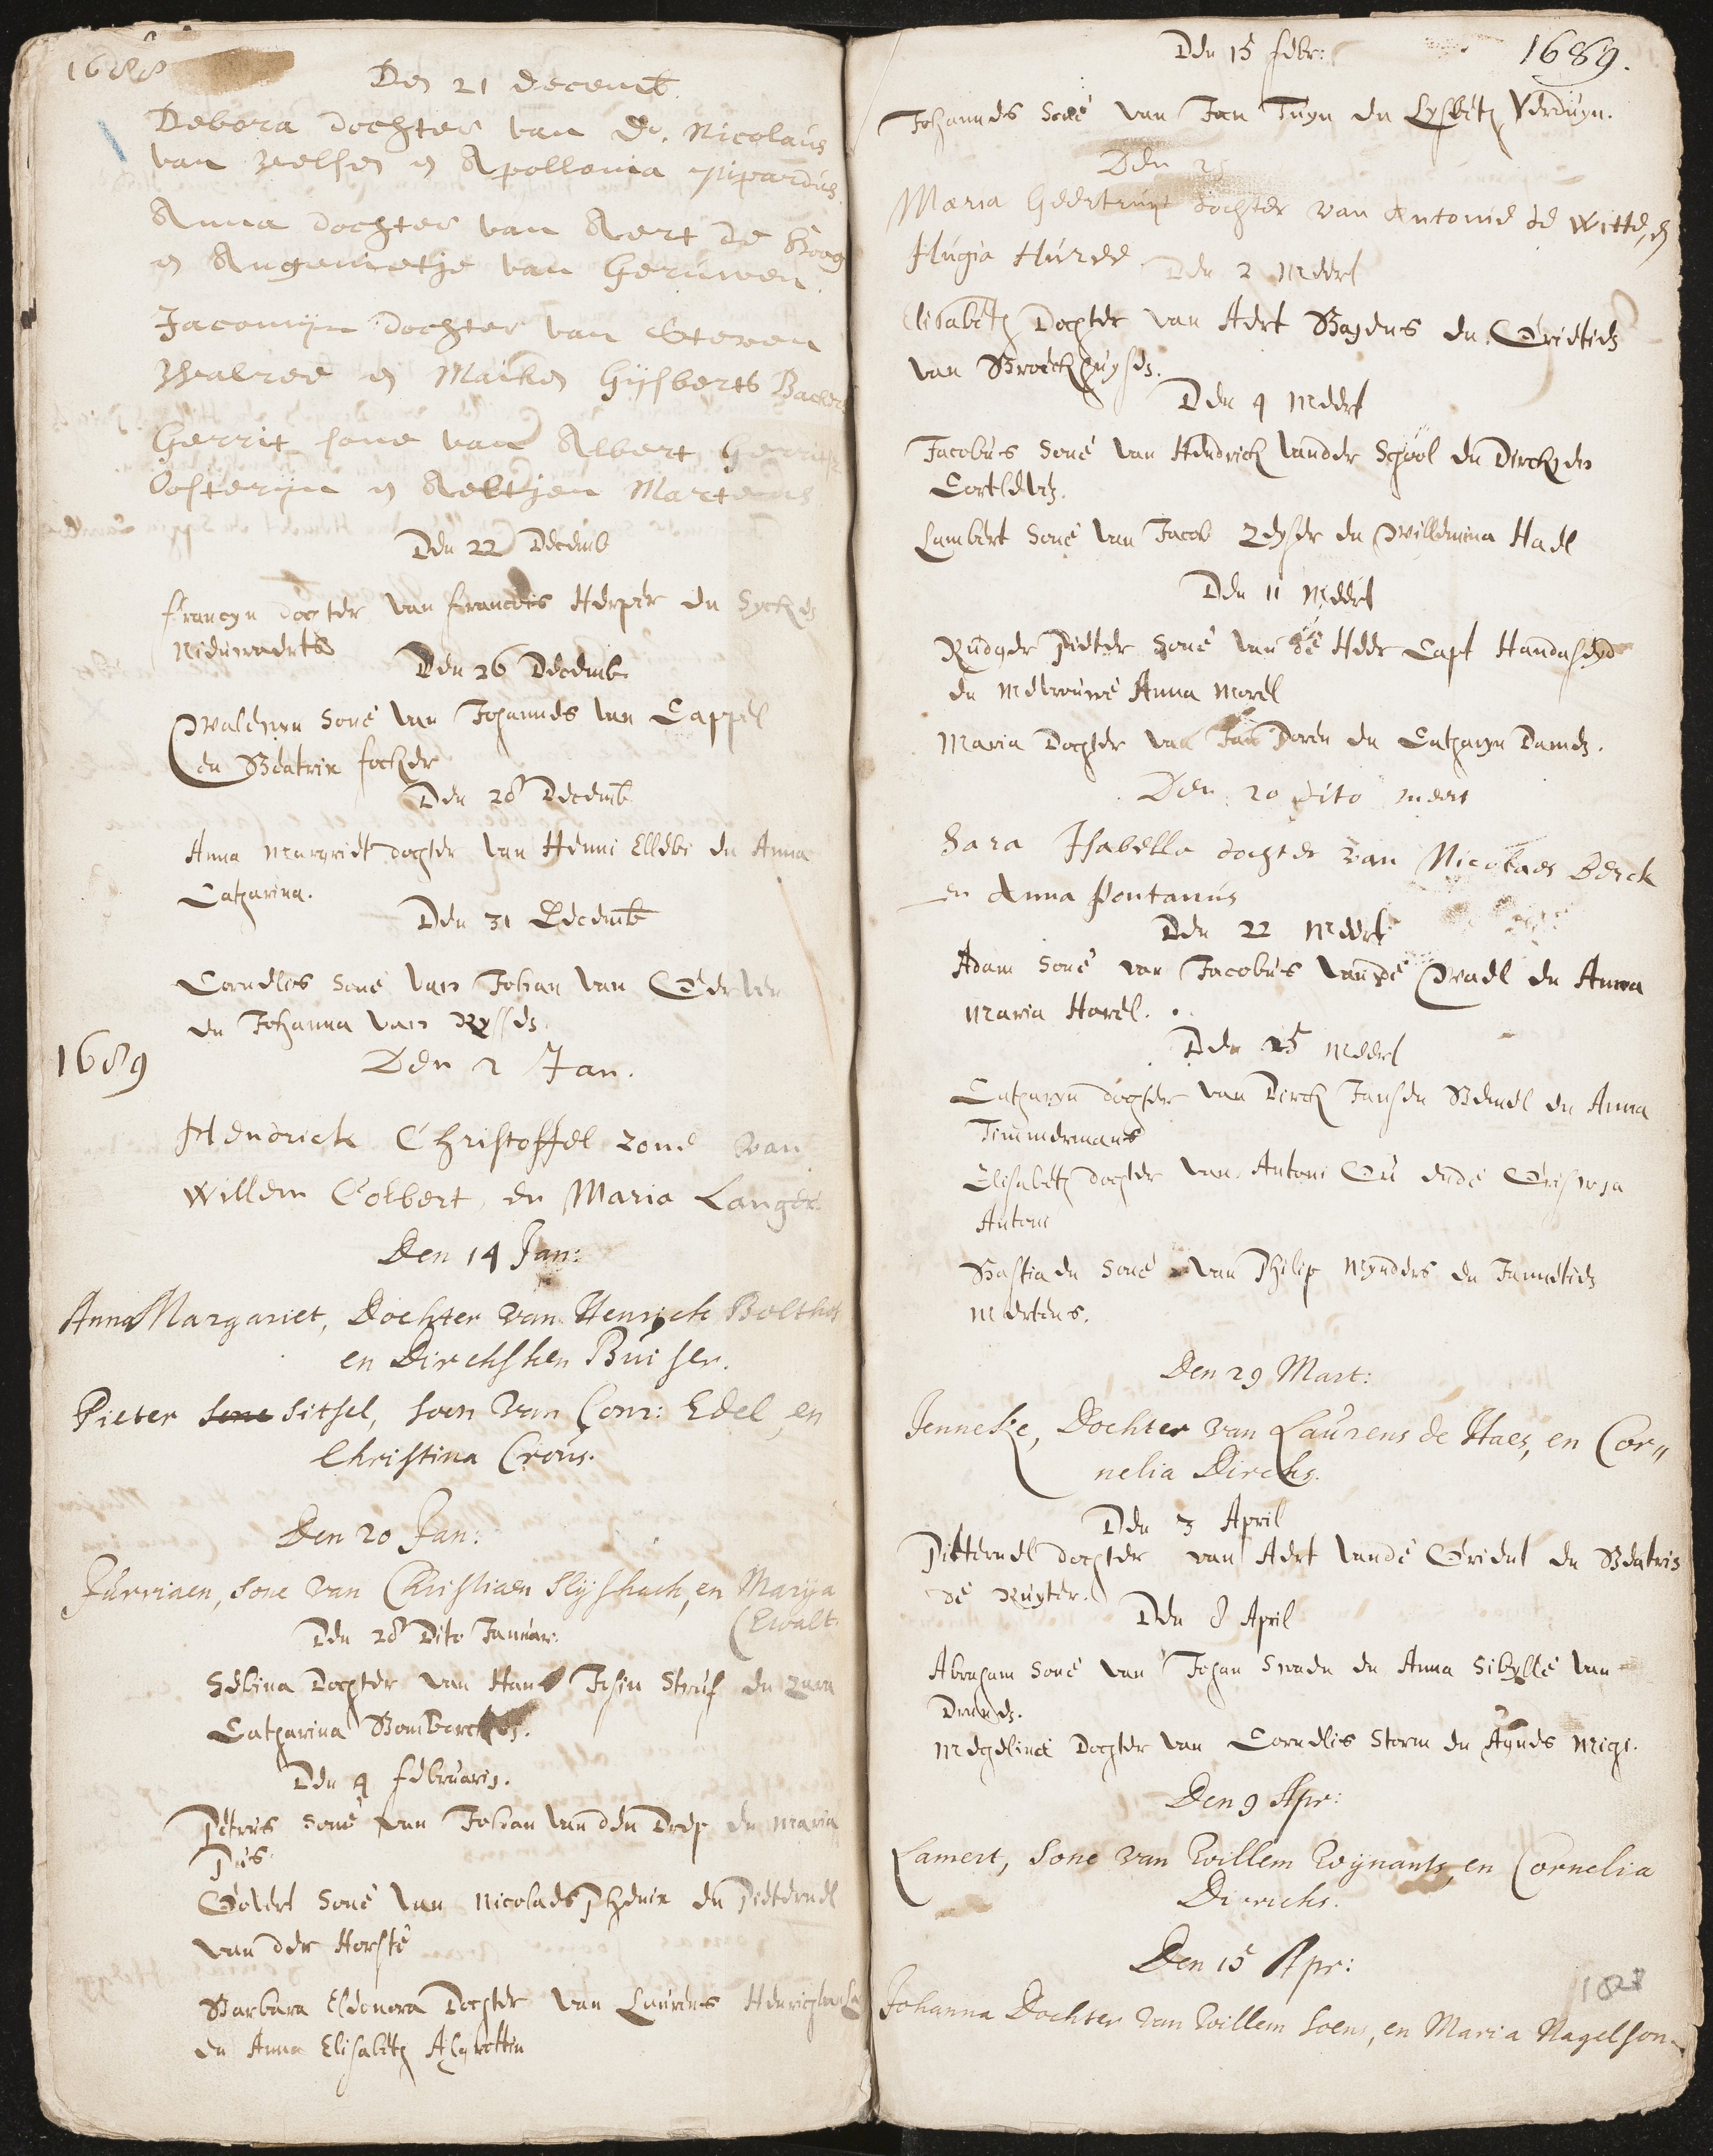 1688
Den 21 decemb.
Debora dochter van Dr. Nicolaus
van Velsen en Apollonia
Anna dochter van Aert de Boog
en Angenietje van Gerüwen.
Jacomijn dochter van Steven
Walree en Maiken Gijsberts Backers
Gerrit sone van Albert Gerritse
Oosterijn en Aeltjen Martens
Den 22 Decemb
francyn dochter van francois Herper en
Nieuwaerts
Den 26 Decemb.
Waldryn sone van Johannes van Cappel
en Beatrix focker
Den 28 Decemb
Anna Margriet dochter van Henni Ellebi en Anna
Catharina.
Den 31 Decemb
Cornelis sone van Johan van
en Johanna van Ryssen.
1689
Den 2 Jan.
Hendrick Christoffel zone van
Willem Colbert en Maria Langer.
Den 14 Jan:
Anna Margariet, Dochter van Henrich
en Dirchsken Buiser.
Pieter sone sitsel, soen van Conr: Edel, en
Christina Crous.
Den 20 Jan:
Jurriaen, sone van Christiaen Slijshach, en Marija
(Ewalt.
Den 28 Dito Januar:
Sebina Dochter van Hans Struf en
Catharina
Den 4 februarij.
Petrus sone van Johan van den Drep en Maria
Pus
Govert sone van Nicolaes Phenix en Pieternel
van der Horste
Barbara Eleonora Dochter van Laurens
en Anna Elisabeth
Den 15 febr:
1689.
Johannes sone van Jan Tuyn en Lysbeth Verduyn.
Den
Maria Geertruyt dochter van Antonie de Witte, en
Hugia Huree
Den 2 Meert
Elisabeth Dochter van Aert Bagens en Grietien
van Broeckhuysen.
Den 4 Meert
Jacobus sone van Hendrick vander School en Dircksken
Lambert sone van Jacob en Willemina Hael
Den 11 Meert
Rudger Pieter sone van de Heer Capt
en Mevrouwe Anna Morel
Maria Dochter van Jan Doren en Catharyn Damen.
Den 20 dito meert
Sara Isabella dochter van Nicolaes Berck
en Anna Pontanus
Den 22 Meert
Adam sone van Jacobus vande Wael en Anna
Maria Harel.
Den 25 Meert
Catharyn dochter van Dirck Jansen Bemel en Anna
Timmermans
Elisabeth dochter van Antoni ende
Antoni
Bastiaen sone van Philip Mynders en Jannetien
Mertens.
Den 29 Mart:
Jenneke, Dochter van Laurens de Haes, en Cor,,
nelia Dircks.
Den 3 April
Pitternel dochter van Aert vande Grient en Beatris
de Ruyter.
Den 8 April
Abraham sone van Johan Swaen en Anna Sibylle van
Megelina Dochter van Cornelis Storm en Agnes
Den 9 Apr:
Lamert, sone van Willem Wijnants, en Cornelia
Dirrichs.
Den 15 Apr:
Johanna Dochter van Willem Soens, en Maria Nagelson.